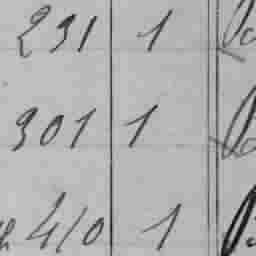 231 1
301 1
410 1